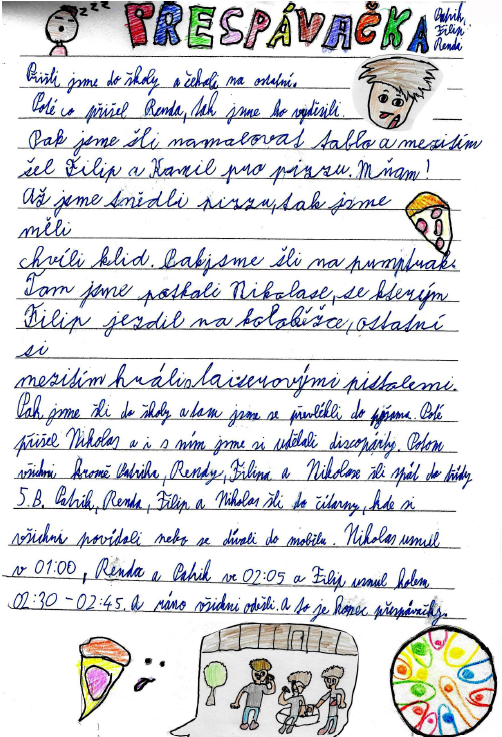 zzz
PŘESPÁVAČKA
Patrik,
Filip
Renda
Přišli jsme do školy a čekali na ostatní.
Poté co přišel Renda, tak jsme ho vyděsili.
Pak jsme šli namalovat tablo a mezitím
šel Filip a Kamil pro pizzu. Mňam!
Až jsme snědli pizzu, tak jsme
měli
chvíli klid. Pak jsme šli na pumptrak.
Tam jsme potkali Nikolase, se kterým
Filip jezdil na koloběžce, ostatní
si
mezitím hráli s laiserovými pistolemi.
Pak jsme šli do školy a tam jsme se převlékli do pyžama. Poté
přišel Nikolas a i s ním jsme si udělali discopárty. Potom
všichni kromě Patrika, Rendy, Filipa a Nikolase šli spát do třídy
5.B. Patrik, Renda, Filip a Nikolas šli do čítárny, kde si
všichni povídali nebo se dívali do mobilu. Nikolas usnul
v 01:00, Renda a Patrik ve 02:05 a Filip usnul kolem
02:30 - 02:45. A ráno všichni odešli. A to je konec přespávačky.